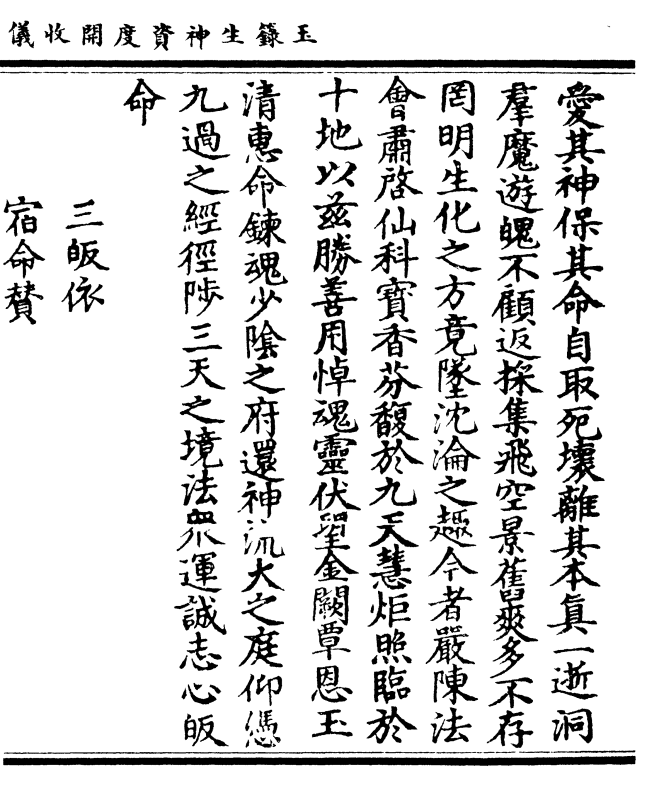 玉籙生神資度開收儀
愛其神保其命自取死壞離其本真一逝洞
羣魔遊魄不顧返採集飛空景舊爽多不存
罔明生化之方竟墜沈淪之趣今者嚴陳法
會肅啓仙科寶香芬馥於九天慧炬照臨於
十地以兹勝善用悼魂靈伏望金闕覃恩玉
清惠命鍊魂少陰之府還神流火之庭仰憑
九過之經徑陟三天之境法衆運誠志心皈
命
三皈依
宿命贊